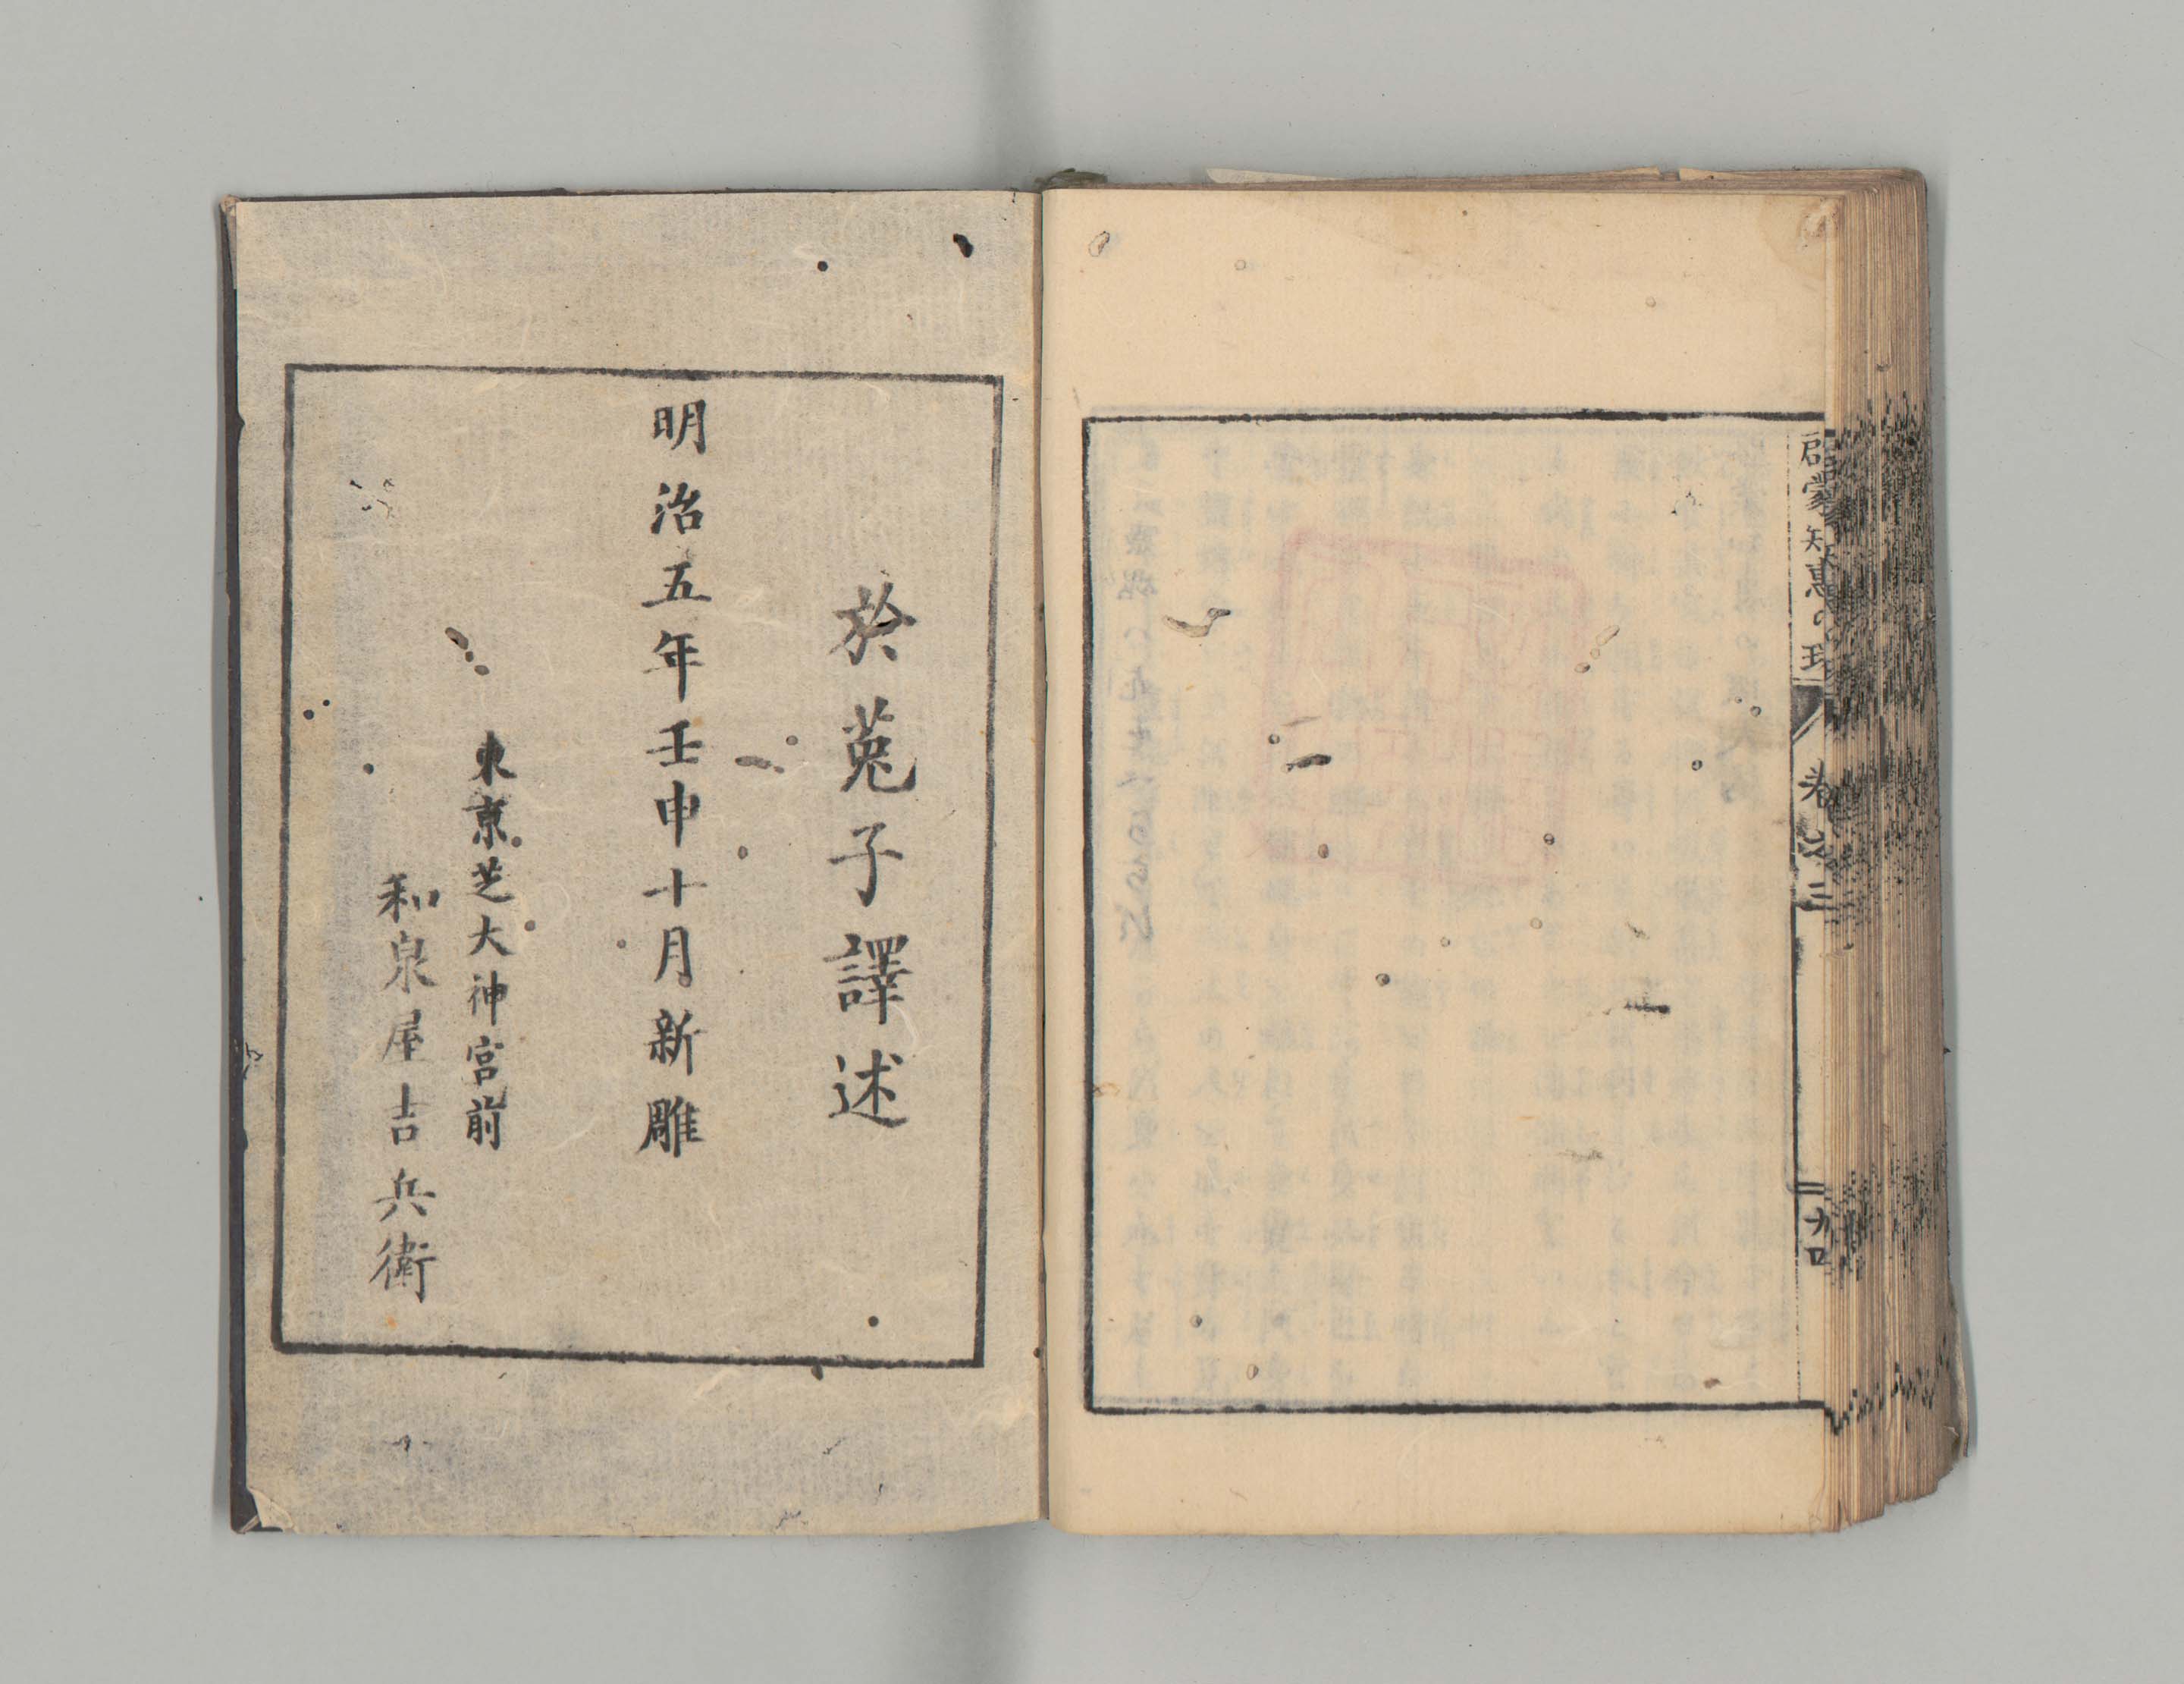 啓蒙知恵の環
巻之三
於菟子譯述
明治五年壬申十月新雕
東京芝大神宮前
和泉屋吉兵衛